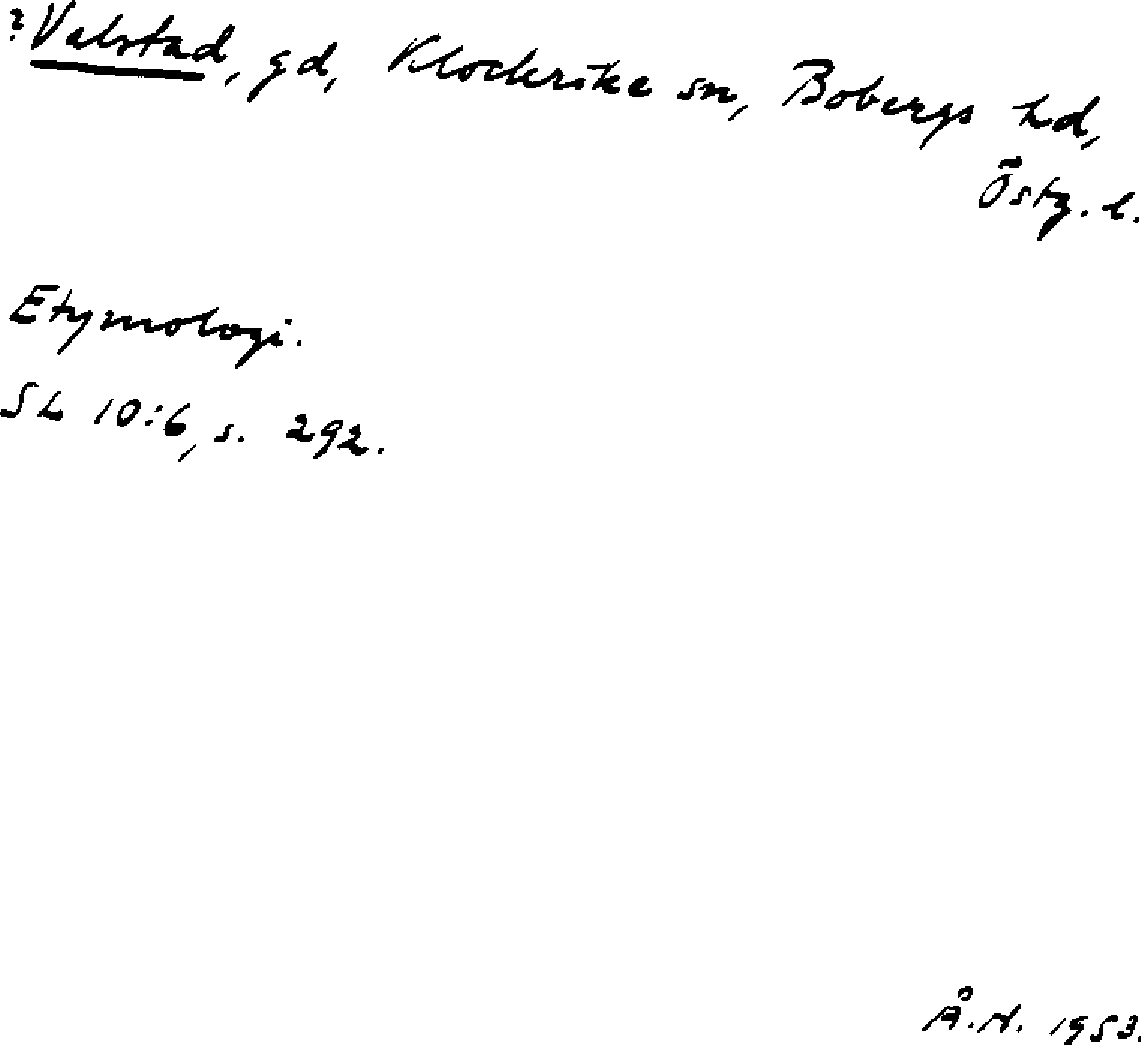 ?Valstad, gd, Klockrike sn, Bobergs hd,
Östg. l.
Etymologi.
SL 10:6, s. 292.
Å.N. 1953.